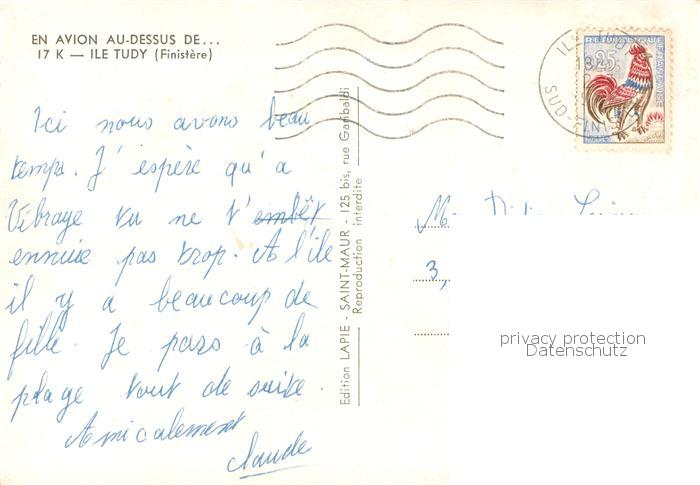 EN AVION AU-DESSUS DE...
17 K — ILE TUDY (Finistère)
Ici nous avons beau
temps. J'espère qu'a
Vibraye tu ne t'embêt
ennuie pas trop. A l'île
il y a beaucoup de
fille. Je pars à la
plage tout de suite.
Amicalement
Claude
Edition LAPIE - SAINT-MAUR - 125 bis, rue Garibaldi
Reproduction interdite
25
M.
3,
privacy protection
Datenschutz